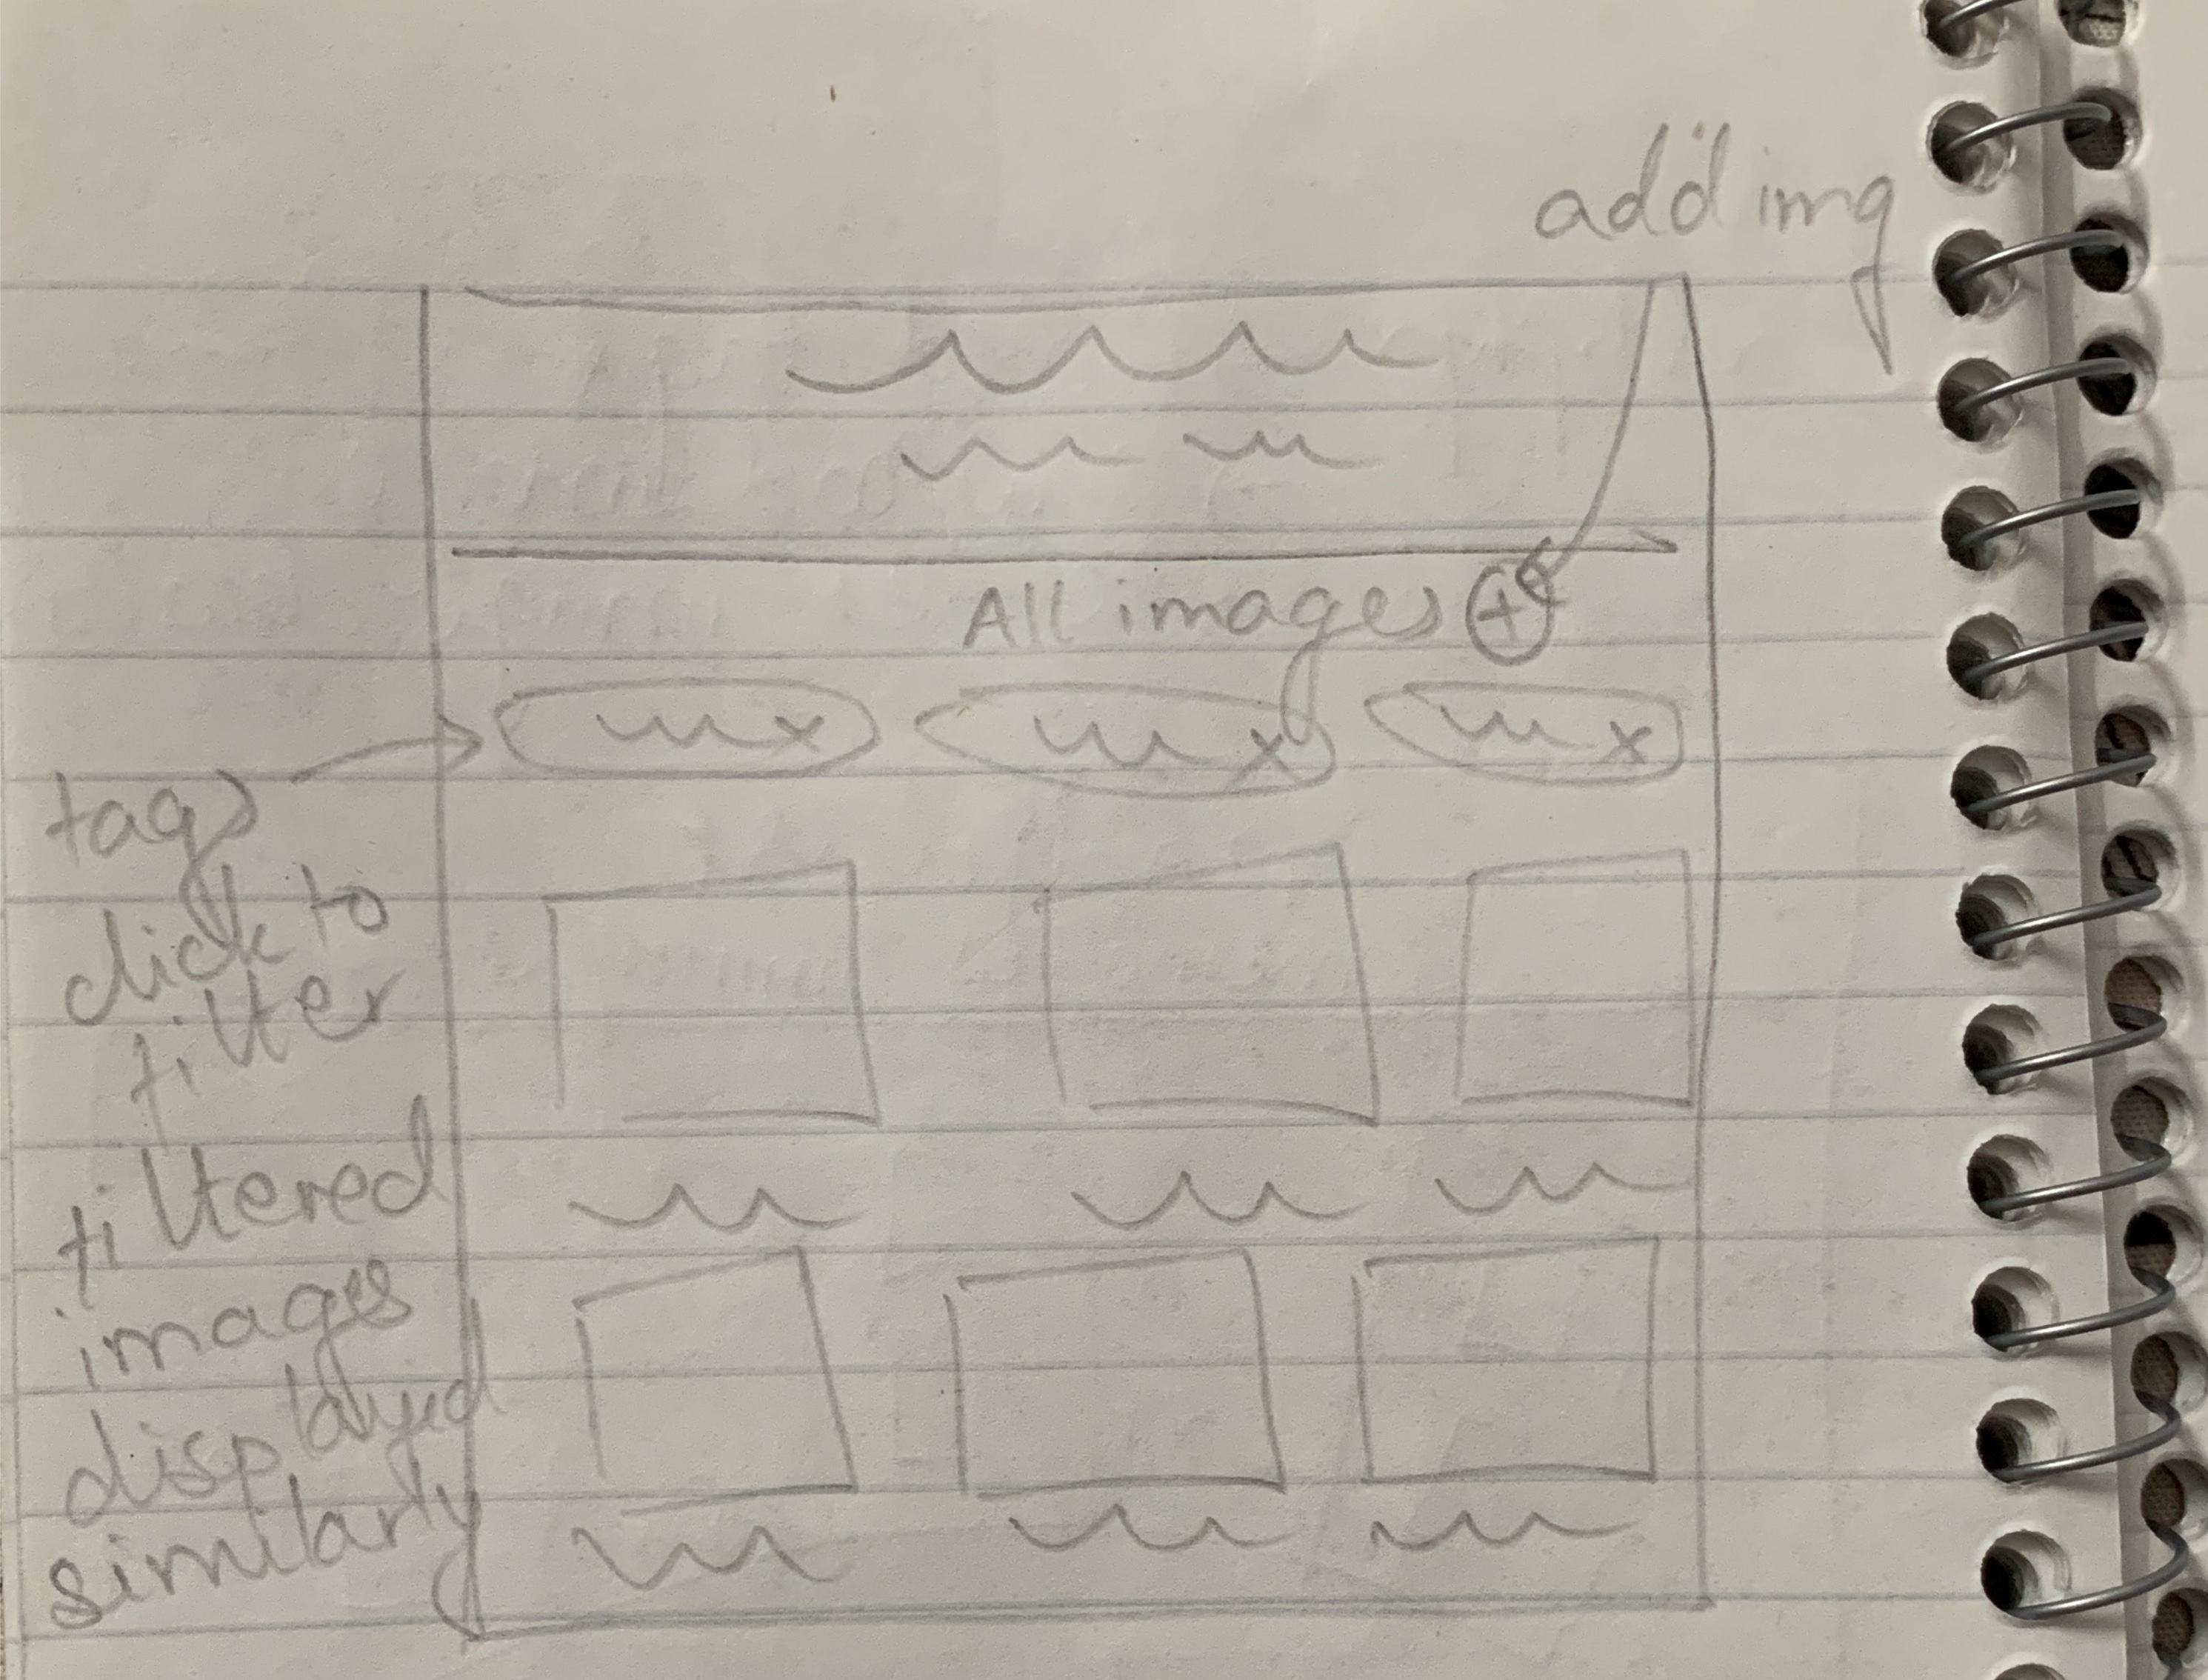 add img
All images +
x x x
tags
click to
filter
filtered
images
displayed
similarly